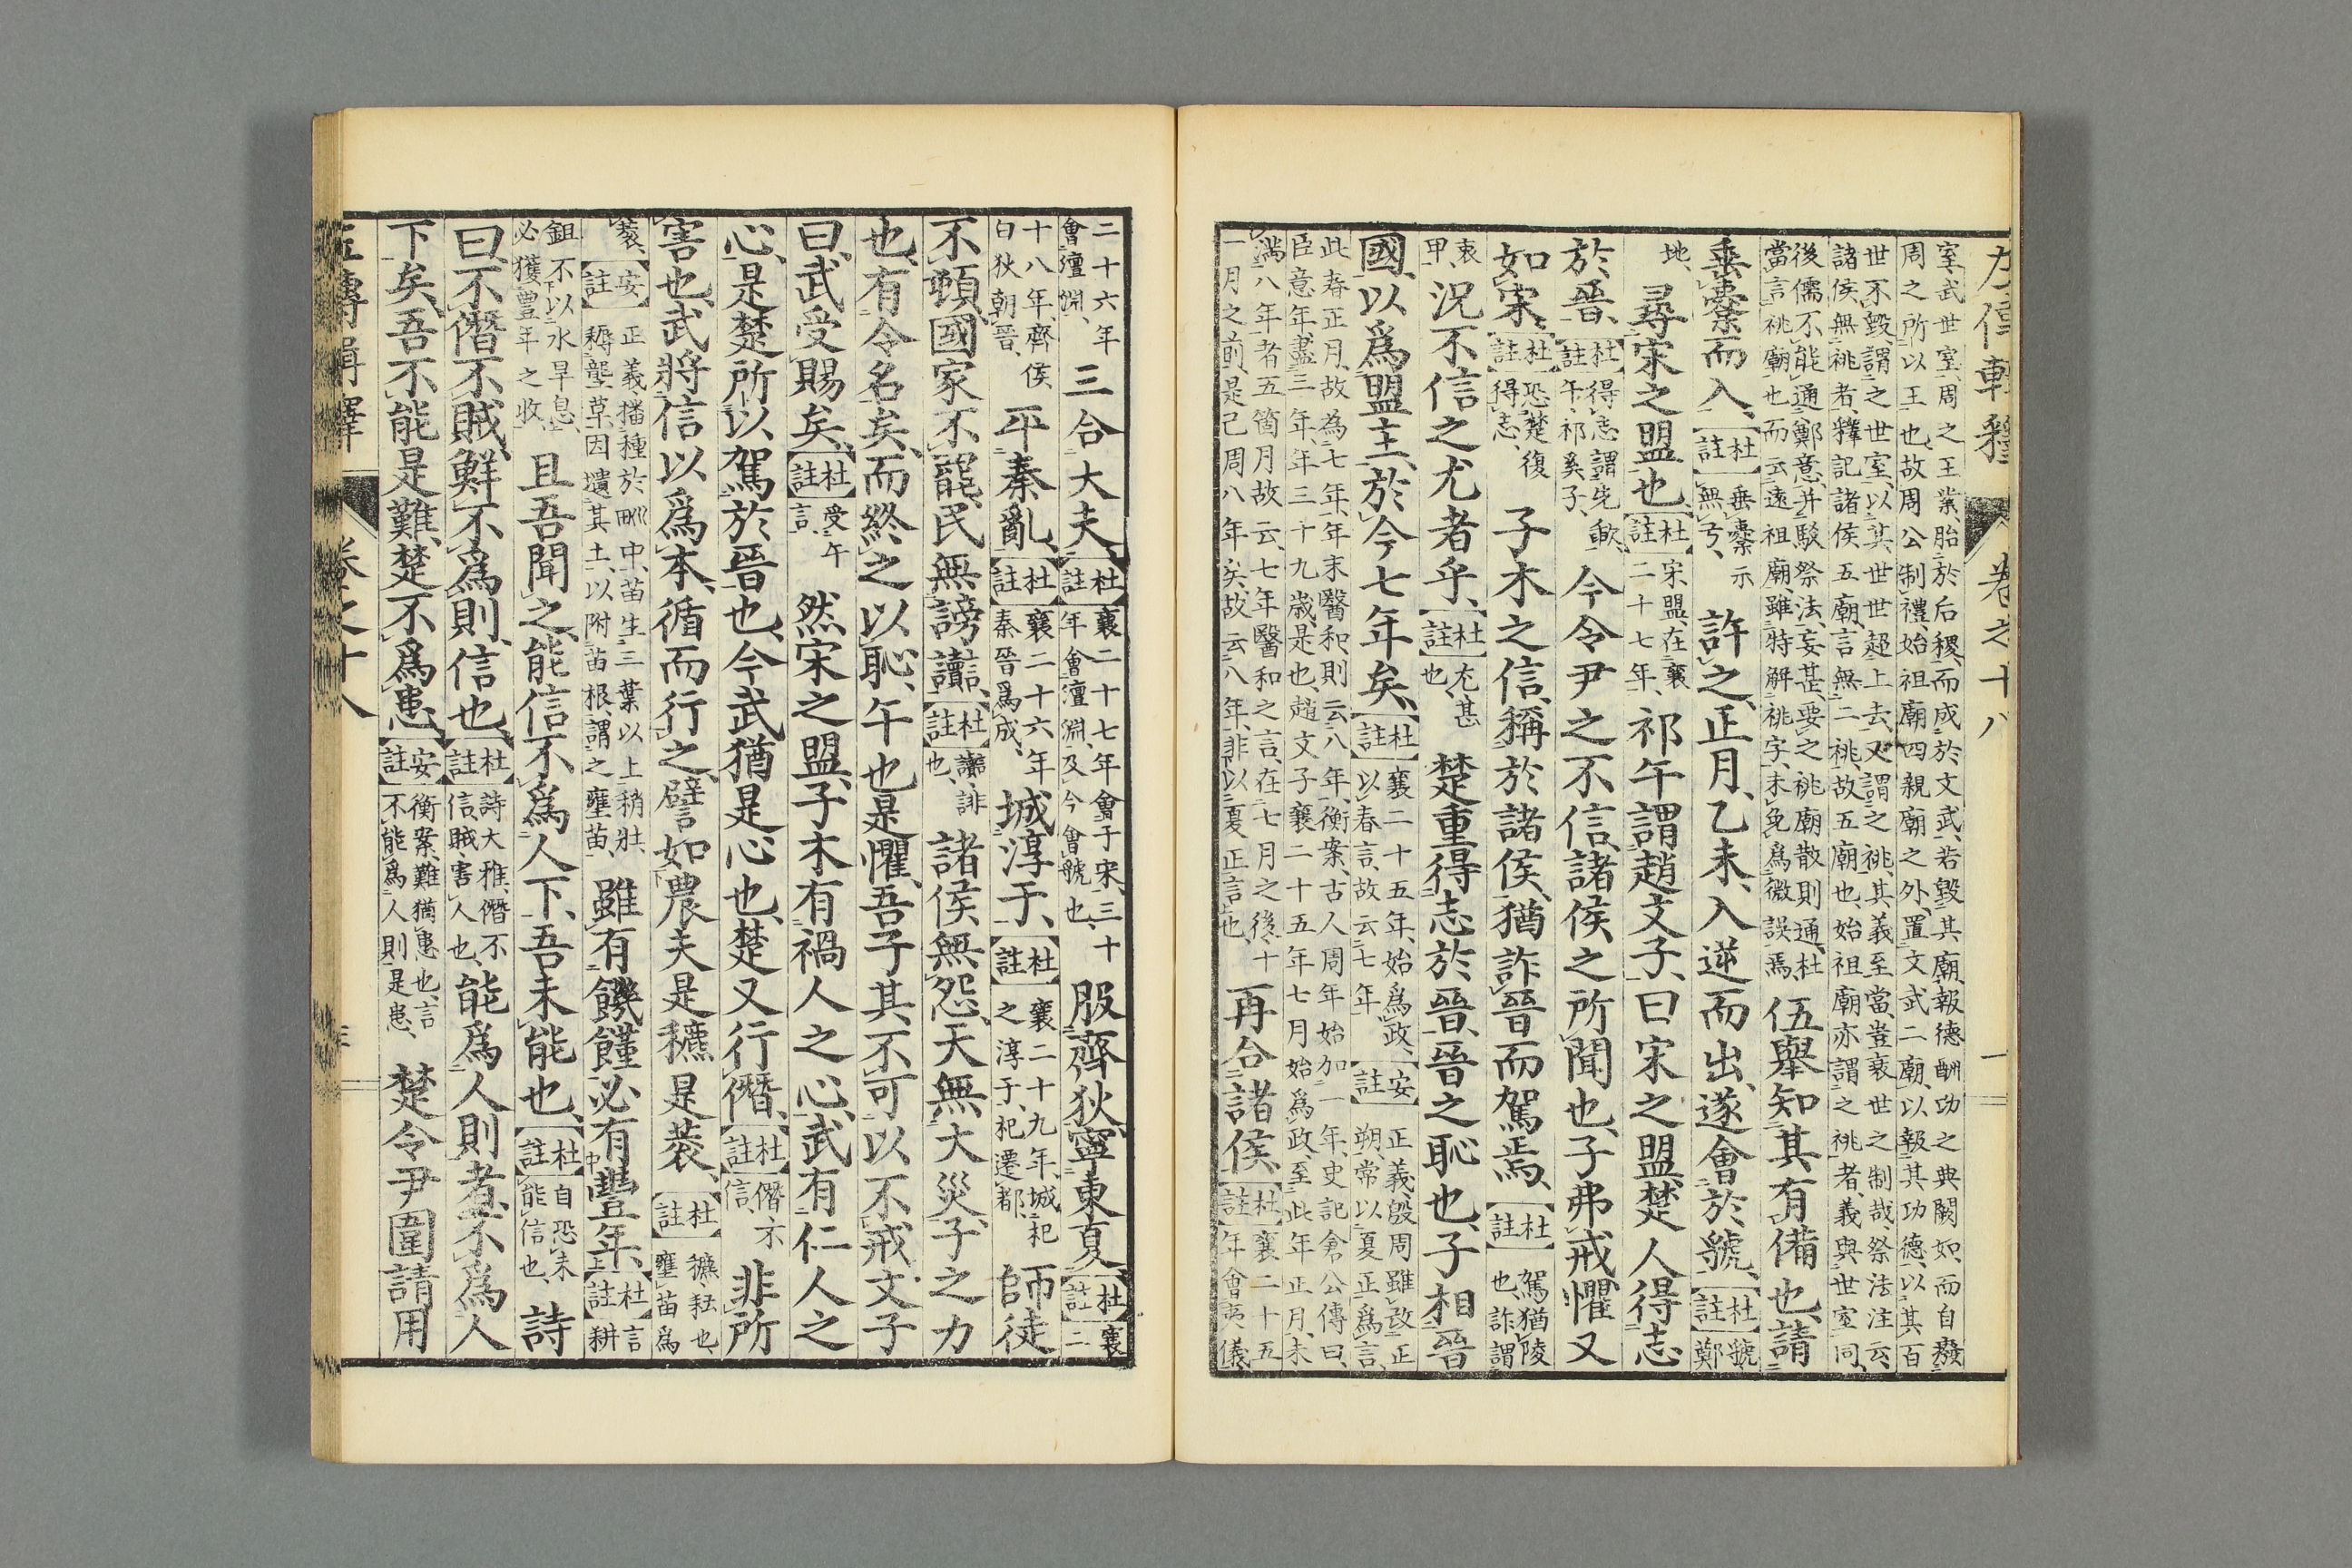 左傳輯釋 卷之十八 一
室、武世室、周之王業、胎於后稷、而成於文武、若毀其廟、報德酬功之典闕如、而自癈
周之所以王也、故周公制禮、始祖廟四親廟之外、置文武二廟、以報其功德、以其百
世不毀、謂之世室、以其世世超上去、又謂之祧、其義至當、豈衰世之制哉、祭法注云、
諸侯無祧者、釋記諸侯五廟、言無二祧、故五廟也、始祖廟亦謂之祧者、義與世室同、
後儒不能通鄭意、幷駁祭法、妄甚、要之祧廟散則通、杜
當言祧廟也、而云遠祖廟、雖特解祧字、未免爲微誤焉
伍擧知其有備也、請
垂櫜而入、【杜註】垂櫜示無弓、許之、正月、乙未、入逆而出、遂會於虢、【杜註】虢、鄭
地、尋宋之盟也、【杜註】宋盟、在襄二十七年、祁午謂趙文子、曰宋之盟、楚人得志
於晉、【杜註】得志謂先歃、午、祁奚子、今令尹之不信、諸侯之所聞也、子弗戒、懼又
如宋、【杜註】恐楚復得志、子木之信、稱於諸侯、猶詐晉而駕焉、【杜註】駕猶陵也、詐謂
衷甲、況不信之尤者乎、【杜註】尤、甚也、楚重得志於晉、晉之恥也、子相晉
國、以爲盟主、於今七年矣、【杜註】襄二十五年、始爲政、以春言、故云七年、【安註】正義、殷周雖改正朔、常以夏正爲言、
此春正月、故為七年、年末醫和、則云八年、衡案、古人周年始加一年、史記倉公傳曰、
臣意年盡三年、年三十九歲、是也、趙文子襄二十五年七月始爲政、至此年正月、未
滿八年者五箇月故云七年、醫和之言、在七月之後、十
一月之前、是已周八年矣、故云八年、非以夏正言也、
再合諸侯、【杜註】襄二十五年會夷儀、
二十六年會澶淵、三合大夫、【杜註】襄二十七年會于宋、三十年會澶淵、及今會虢也、服齊狄、寧東夏、【杜註】襄二
十八年、齊侯白狄朝晉、平秦亂、【杜註】襄二十六年秦晉爲成、城淳于、【杜註】襄二十九年、城杞之淳于、杞遷都、師徒
不頓、國家不罷、民無謗讟、【杜註】讟、誹也、諸侯無怨、天無大災、子之力
也、有令名矣、而終之以恥、午也是懼、吾子其不可以不戒、文子
曰、武受賜矣、【杜註】受午言、然宋之盟、子木有禍人之心、武有仁人之
心、是楚所以駕於晉也、今武猶是心也、楚又行僭、【杜註】僭、不信、非所
害也、武將信以爲本、循而行之、譬如農夫是穮是蓘、【杜註】穮、耘也、壅苗爲
蓘、【安註】正義、播種於畎中、苗生三葉以上稍壯、耨壟草、因壝其土、以附苗根、謂之壅苗、雖有饑饉、必有豐年、【杜註】言耕
鉏不以水旱息、必獲豐年之收、且吾聞之、能信不爲人下、吾未能也、【杜註】自恐未能信也、詩
曰、不僭不賊、鮮不爲則、信也、【杜註】詩大雅、僭不信、賊、害人也、能爲人則者、不爲人
下矣、吾不能是難、楚不爲患、【安註】衡案、難猶患也、言不能爲人則是患、楚令尹圍請用
左傳輯釋 卷之十八